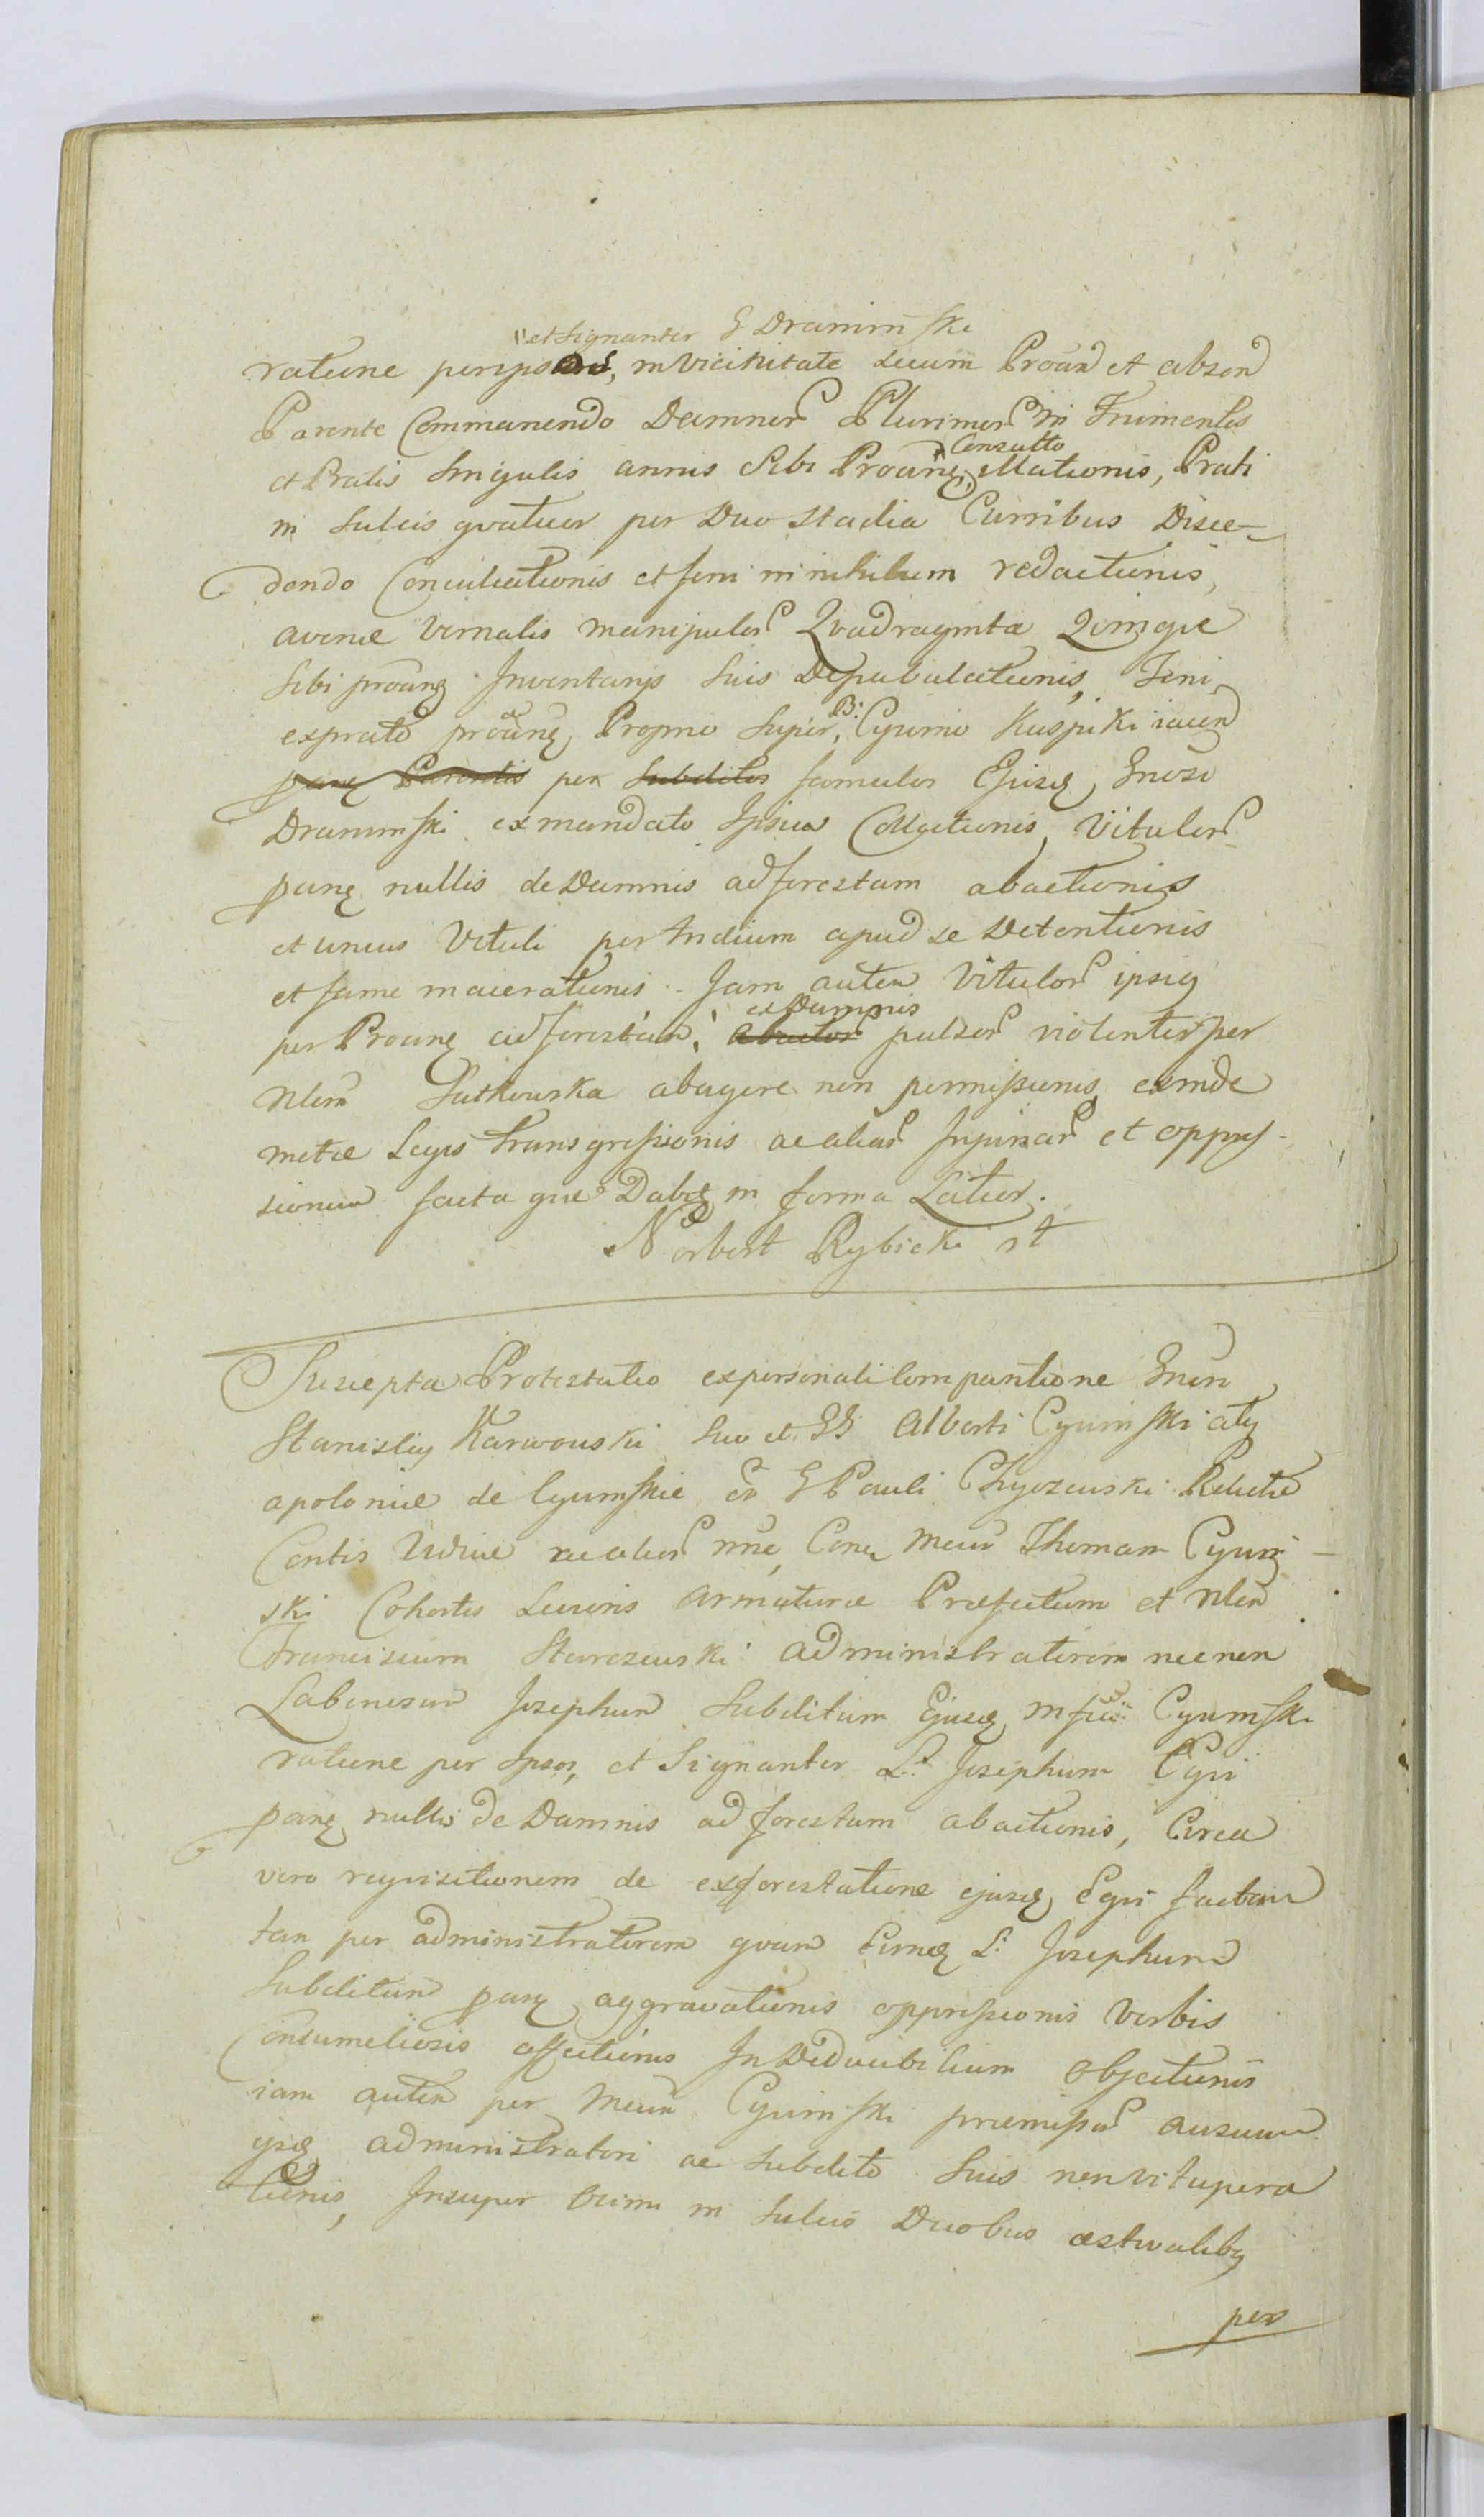 "et Signanter G Draminski
ratione per ipsos, in vicinitate secum Proan et absen
Parente Commanendo Damnor Plurimor in Frumentis
et Pratis singulis annis Sibi Proang, Consulto Mationis, Prati
in Sulcis quatuor per Duo stadia Curribus Disce-
dendo Conculcationis et feni in nihilum redactionis,
avenae vernalis manipulor Quadraginta Quinque
sibi proang Inventarijs suis Depabulationis, Feni
ex prato proang Proprio super B: Cyumo Kuspiki iacen
pang Parentis per Subditos famulos Ejusd, Gnosi
Draminski ex mandato Ipsius Collectionis, Vitulor
pang nullis de Damnis ad forestam abactionis
et unius Vituli per Triduum apud se Detentionis
et fame macerationis. Jam autem Vitulor ipsig
per Proang ad forestam, ex Damnis abactor pulsor violenter per
Nlem Sutkowska abagere non permissionis, exinde
metae Legis transgressionis ac aliar Injuriar et oppres-
sionum facta que Dabit in forma Latior.
Norbert Rybicki

Suscepta Protestatio ex personali Comparitione Gnen
Stanislaj Karwowski suo et GG Alberti Cyumski atq
apoloniae de Cyumskie G Pauli Chyczewski Relictae
Contis Viduae ac alior nne, Cona Meum Thomam Cyum
ski Cohortis Levioris armaturae Praefectum et Nlem
Franciscum Starczewski administratorem necnon
Laberiosum Josephum Subditum Ejusd, Mfici Cyumski
ratione per Ipsos, et Signanter L. Josephum Eqvi
pang nullis de Damnis ad forestam abactionis, Circa
vero requisitionem de exforestatione ejusd, Eqvi factam
tam per administratorem qvam Eumd L. Josephum
Subditum pang aggravationis oppressionis Verbis
Contumeliosis affectionis InDeducibilium Objectionis
iam autem per Meum Cyumski praemissor ausuum
ipsd administratori ac Subdito suis non vitupera
tionis, Insuper in Sulcis Duobus aestivalibg
per